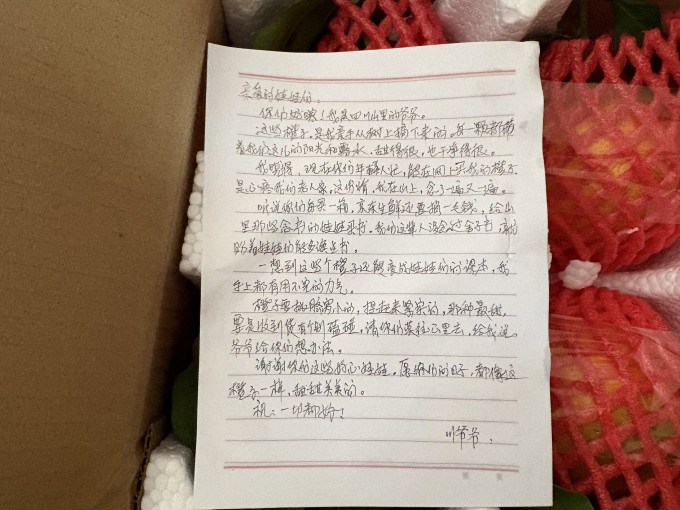 亲爱的娃娃们。
你们好噻！我是四川山里的爷爷。
这些橙子，是我亲手从树上摘下来的。每一颗都带
着我们这儿的阳光和露水，甜得很，也干净得很。
我晓得，现在你们年轻人忙，能在网上买我的橙子
是心疼我们老人家，这份情，我在山上，念了一遍又一遍。
听说你们每买一箱，京东生鲜还要捐一元钱，给山
里那些念书的娃娃买书。我们这辈人没念过舍子书，就
盼着娃娃们能多读点书。
一想到这些个橙子还能变成娃娃们的课本，我
手上都有用不完的力气。
橙子要挑脐窝小的，捏起来紧紧的，那种最甜，
要是收到货有个别磕碰，请你们莫往心里去，给我说
爷爷给你们想办法。
谢谢你们这些好心娃娃，愿你们的日子，都像这
橙子一样，甜甜美美的。
祝：一切都好！
川爷爷。